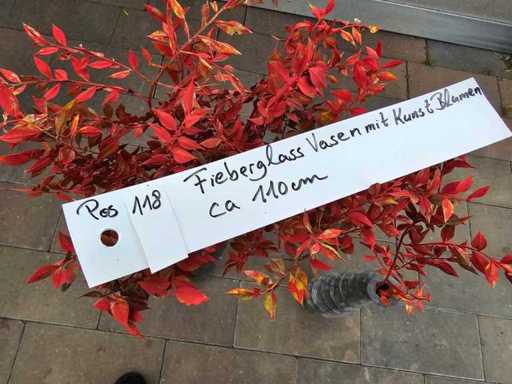 Pos 118
Fieberglass Vasen mit Kunst Blumen
ca 110cm